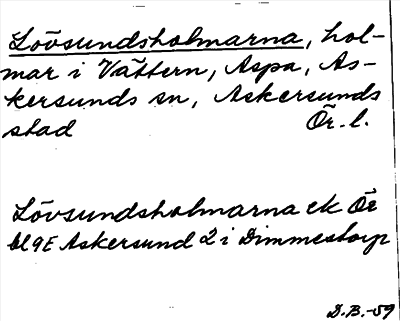 Lövsundsholmarna, hol-
mar i Vättern, Aspa, As-
kersunds sn, Askersunds
stad Ör. l.
Lövsundsholmarna ek Ör
bl 9E Askersund 2 i Dimmestorp
D.B.-59